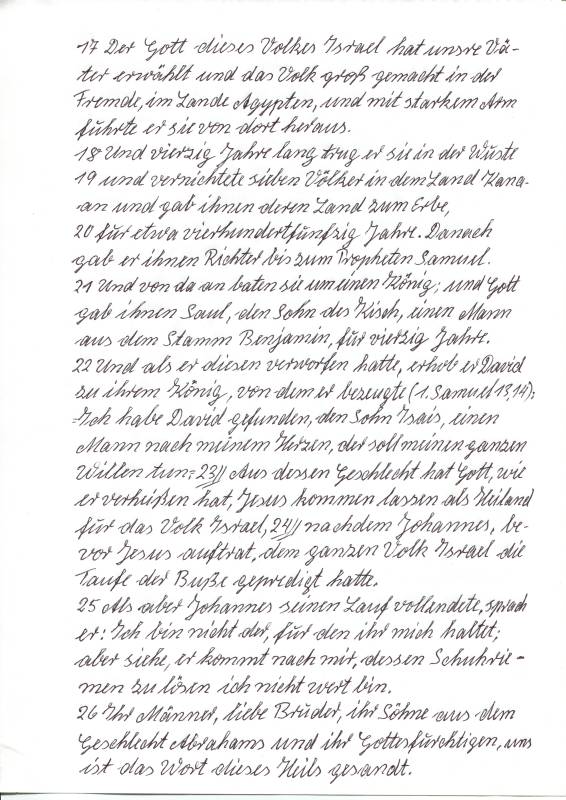 17 Der Gott dieses Volkes Israel hat unsre Vä-
ter erwählt und das Volk groß gemacht in der
Fremde, im Lande Ägypten, und mit starkem Arm
führte er sie von dort heraus.
18 Und vierzig Jahre lang trug er sie in der Wüste
19 und vernichtete sieben Völker in dem Land Kana-
an und gab ihnen deren Land zum Erbe,
20 für etwa vierhundertfünfzig Jahre. Danach
gab er ihnen Richter bis zum Propheten Samuel.
21 Und von da an baten sie um einen König; und Gott
gab ihnen Saul, den Sohn des Kisch, einen Mann
aus dem Stamm Benjamin, für vierzig Jahre.
22 Und als er diesen verworfen hatte, erhob er David
zu ihrem König, von dem er bezeugte (1. Samuel 13,14):
=Ich habe David gefunden, den Sohn Isais, einen
Mann nach meinem Herzen, der soll meinen ganzen
Willen tun.= 23// Aus dessen Geschlecht hat Gott, wie
er verheißen hat, Jesus kommen lassen als Heiland
für das Volk Israel, 24// nachdem Johannes, be-
vor Jesus auftrat, dem ganzen Volk Israel die
Taufe der Buße gepredigt hatte.
25 Als aber Johannes seinen Lauf vollendete, sprach
er: Ich bin nicht der, für den ihr mich haltet;
aber siehe, er kommt nach mir, dessen Schuhrie-
men zu lösen ich nicht wert bin.
26 Ihr Männer, liebe Brüder, ihr Söhne aus dem
Geschlecht Abrahams und ihr Gottesfürchtigen, uns
ist das Wort dieses Heils gesandt.